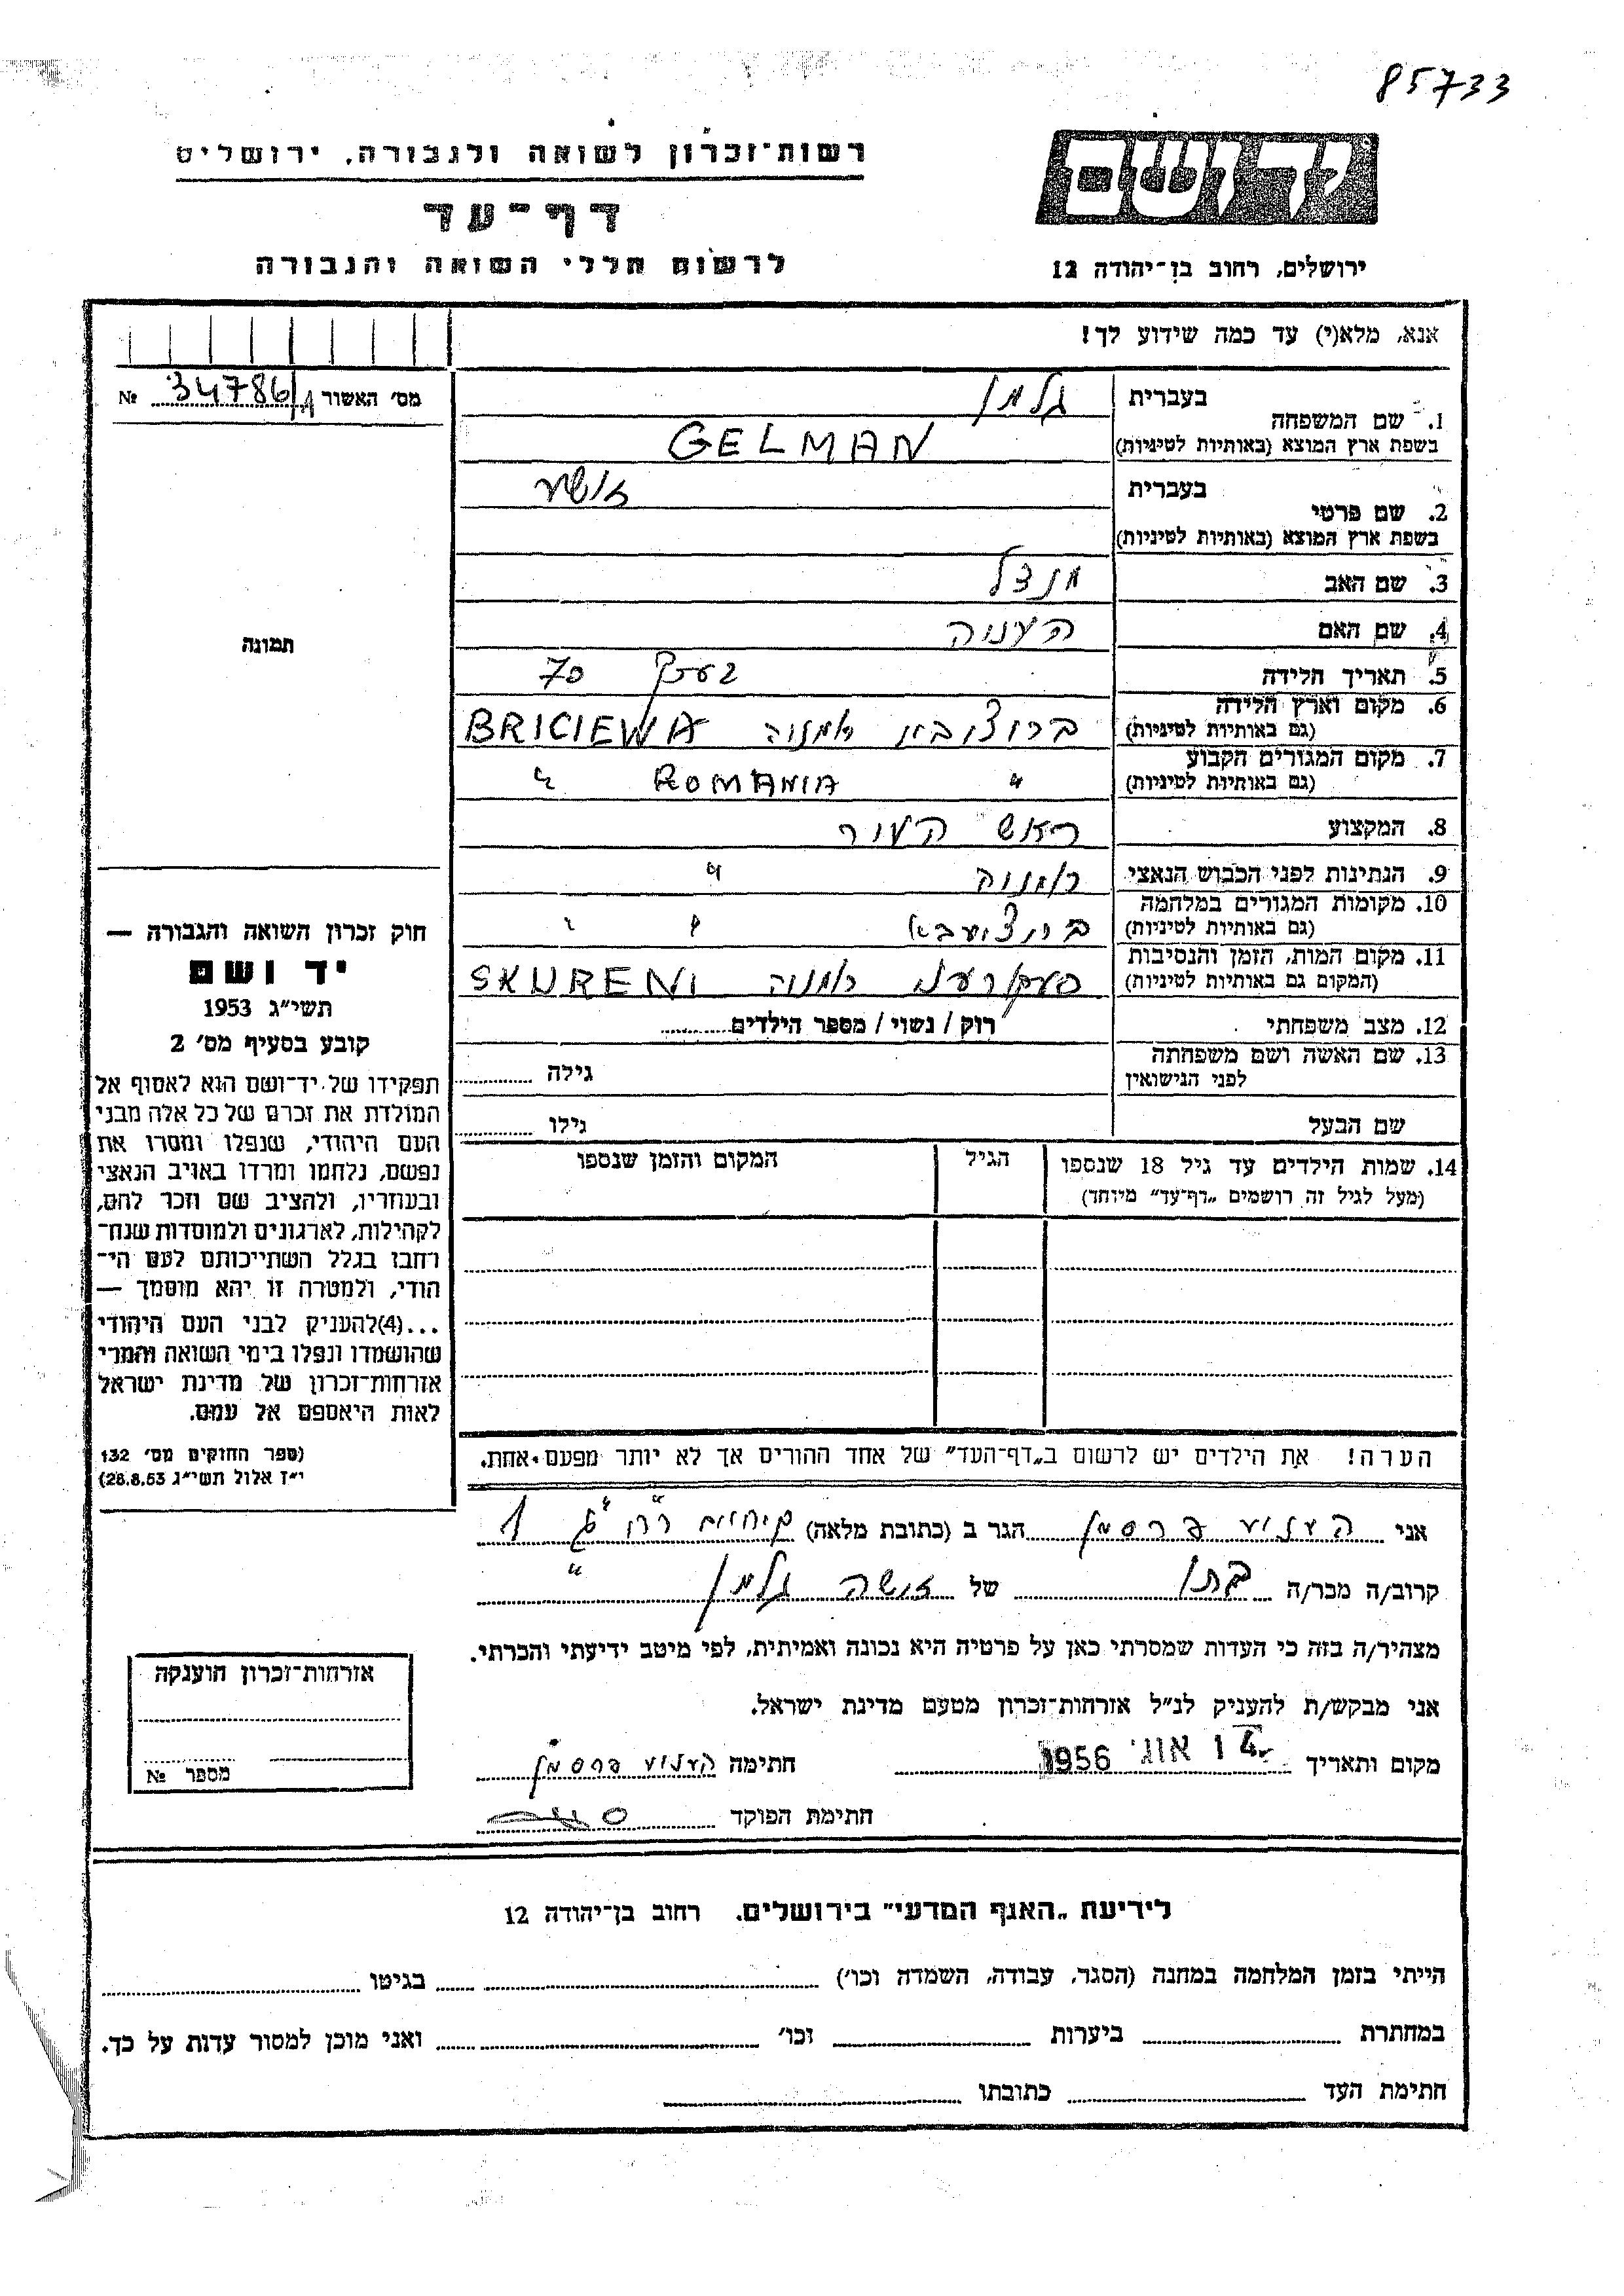 85733
יד ושם
ירושלים, רחוב בן־יהודה 12
רשות־זכרון לשואה ולגבורה, ירושלים
דף־עד
לרשום חללי השואה והגבורה
אנא, מלא(י) עד כמה שידוע לך!
מס׳ האשור 34786/A №
1. שם המשפחה
בעברית גלמן
בשפת ארץ המוצא (באותיות לטיניות) GELMAN
2. שם פרטי
בעברית
בשפת ארץ המוצא (באותיות לטיניות)
3. שם האב מנדל
4. שם האם
5. תאריך הלידה בערך 70
6. מקום וארץ הלידה
(גם באותיות לטיניות) רומניה BRICIEWA
7. מקום המגורים הקבוע
(גם באותיות לטיניות) " ROMANIA "
8. המקצוע ראש העיר
9. הנתינות לפני הכבוש הנאצי רומניה "
10. מקומות המגורים במלחמה
(גם באותיות לטיניות) " "
11. מקום המות, הזמן והנסיבות
(המקום גם באותיות לטיניות) רומניה SKURENI
12. מצב משפחתי רוק / נשוי / מספר הילדים
13. שם האשה ושם משפחתה
לפני הנישואין גילה
שם הבעל גילו
14. שמות הילדים עד גיל 18 שנספו
(מעל לגיל זה רושמים „דף־עד" מיוחד)
הגיל
המקום והזמן שנספו
הערה! את הילדים יש לרשום ב„דף־העד" של אחד ההורים אך לא יותר מפעם אחת.
תמונה
חוק זכרון השואה והגבורה —
יד ושם
תשי״ג 1953
קובע בסעיף מס׳ 2
תפקידו של יד־ושם הוא לאסוף אל
המולדת את זכרם של כל אלה מבני
העם היהודי, שנפלו ומסרו את
נפשם, נלחמו ומרדו באויב הנאצי
ובעוזריו, ולהציב שם וזכר להם,
לקהילות, לארגונים ולמוסדות שנח־
רחבו בגלל השתייכותם לעם הי־
הודי, ולמטרה זו יהא מוסמך —
...(4)להעניק לבני העם היהודי
שהושמדו ונפלו בימי השואה והמרי
אזרחות־זכרון של מדינת ישראל
לאות היאספם אל עמם.
(ספר החוקים מס׳ 132
י״ז אלול תשי״ג 28.8.53)
אני הגר ב (כתובת מלאה) 1
קרוב/ה מכר/ה בתו של זושה גלמן "
מצהיר/ה בזה כי העדות שמסרתי כאן על פרטיה היא נכונה ואמיתית, לפי מיטב ידיעתי והכרתי.
אני מבקש/ת להעניק לנ״ל אזרחות־זכרון מטעם מדינת ישראל.
מקום ותאריך 14 אוג׳ 1956 חתימה
חתימת הפוקד
אזרחות־זכרון הוענקה
מספר №
לידיעת „האגף המדעי" בירושלים. רחוב בן־יהודה 12
הייתי בזמן המלחמה במחנה (הסגר, עבודה, השמדה וכו׳) בגיטו
במחתרת ביערות וכו׳ ואני מוכן למסור עדות על כך.
חתימת העד כתובתו